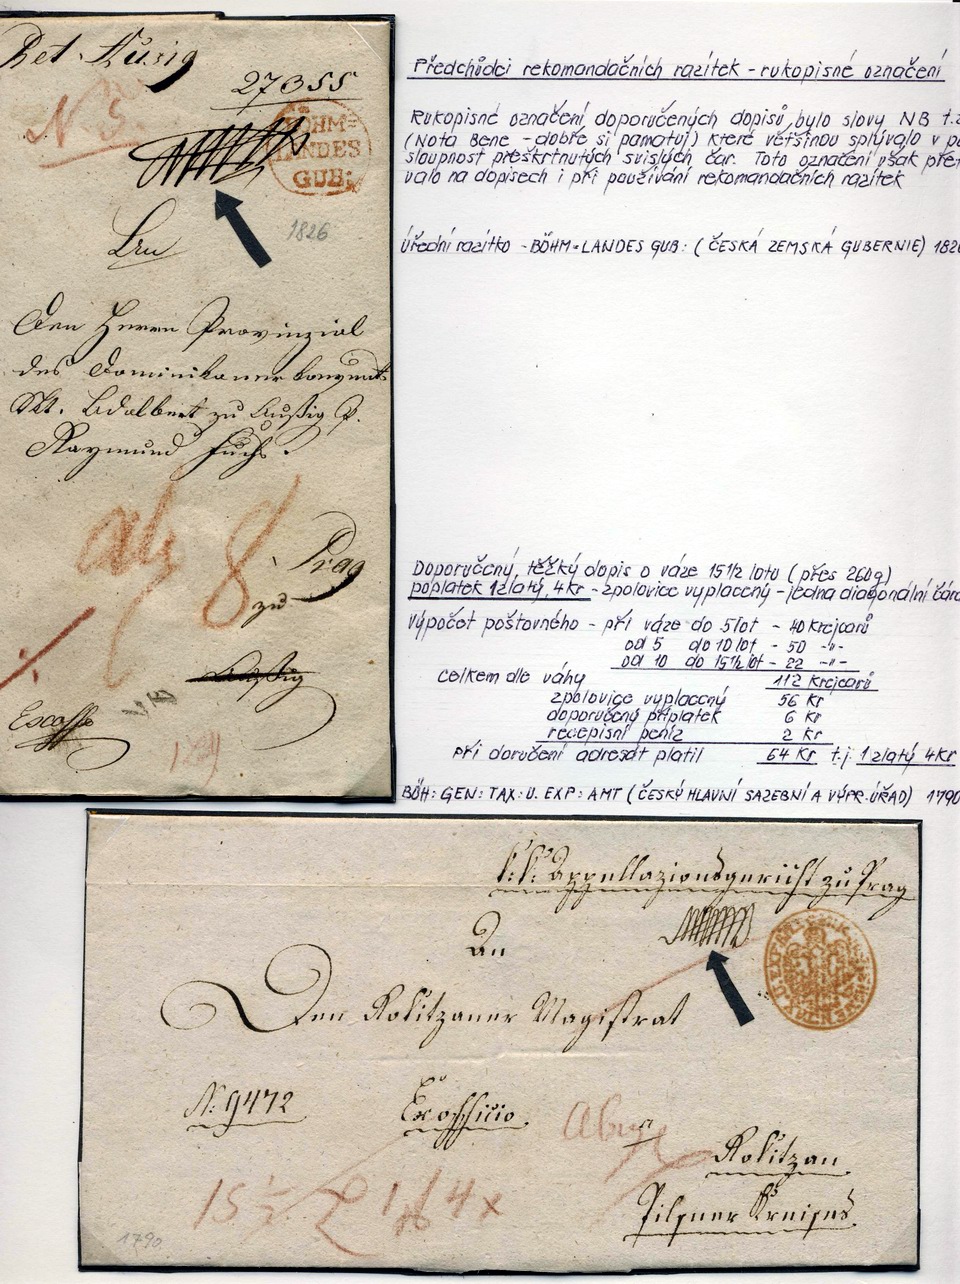 Ret. Aussig
N. 5.
27355
BÖHM=
LANDES
GUB:
1826
An
Den Herrn Provinzial
des Dominikanerkonvents
Skt. Adalbert zu Außig P.
Raymund Fuchs.
8
Prag
zu
Aussig
Exoffo
Předchůdci rekomandačních razítek - rukopisné označení
Rukopisné označení doporučených dopisů bylo slovy NB t.z
(Nota Bene - dobře si pamatuj) které většinou splývalo v po
sloupnost přeškrtnutých svislých čar. Toto označení však přet
valo na dopisech i při používání rekomandačních razítek
úřední razítko - BÖHM=LANDES GUB: (ČESKÁ ZEMSKÁ GUBERNIE) 1826
Doporučený, těžký dopis o váze 15 1/2 lotu (přes 260g)
poplatek 1 zlatý, 4 kr - zpolovice vyplacený - jedna diagonální čára
výpočet poštovného - při váze do 5 lot - 40 krejcarů
od 5 do 10 lot - 50 -"-
od 10 do 15 1/2 lot - 22 -"-
celkem dle váhy 112 krejcarů
zpolovice vyplacený 56 kr
doporučený příplatek 6 kr
recepisní peníz 2 kr
při doručení adresát platil 64 kr t.j. 1 zlatý 4 kr
BÖH: GEN: TAX: U. EXP: AMT (ČESKÝ HLAVNÍ SAZEBNÍ A VÝPR. ÚŘAD) 1790
k: k: Appellazionsgericht zu Prag
An
Den Rokitzaner Magistrat
N: 9472
Exofficio
Rokitzan
Pilsner Kreises
15 1/2 L 1 f 4 x
1790